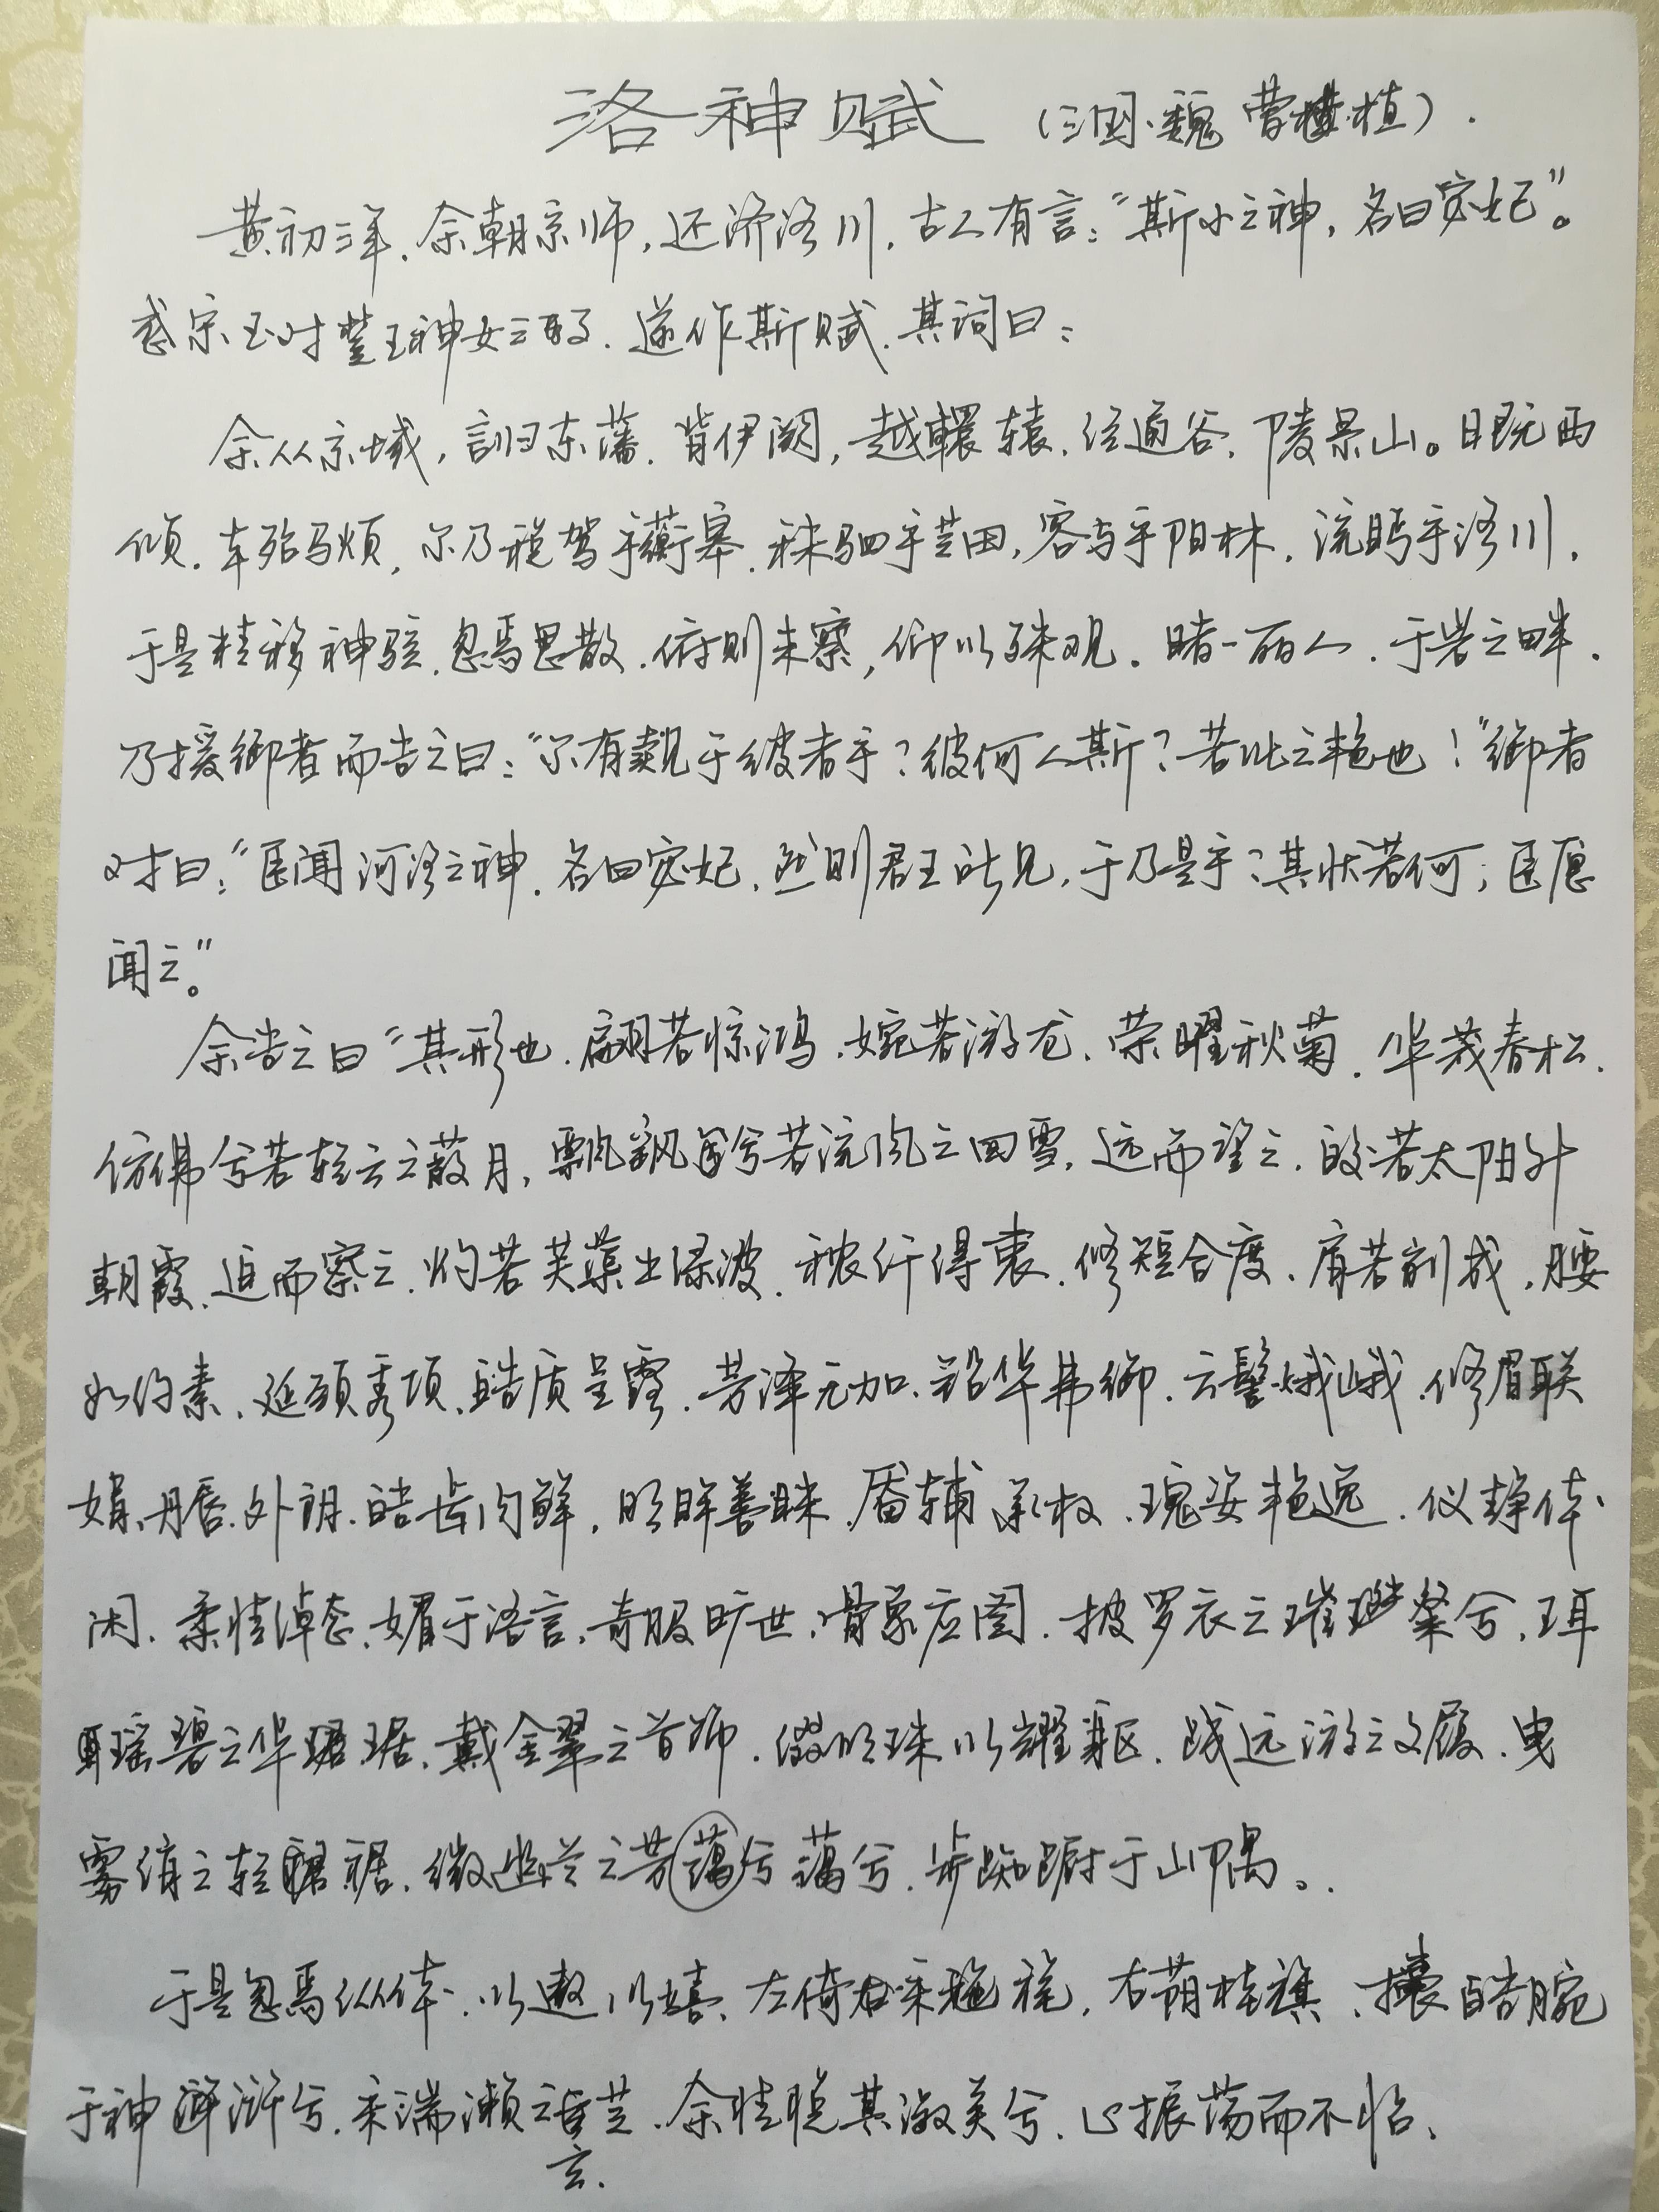 洛神赋 (三国·魏 曹植).
黄初三年,余朝京师,还济洛川,古人有言:"斯水之神,名曰宓妃"。
感宋玉对楚王神女之事,遂作斯赋,其词曰:
余从京域,言归东藩,背伊阙,越轘辕,经通谷,陵景山。日既西
倾,车殆马烦,尔乃税驾乎蘅皋,秣驷乎芝田,容与乎阳林,流眄乎洛川,
于是精移神骇,忽焉思散,俯则未察,仰以殊观。睹一丽人,于岩之畔,
乃援御者而告之曰:"尔有觌于彼者乎?彼何人斯?若此之艳也!"御者
对曰:"臣闻河洛之神,名曰宓妃,然则君王所见,于乃是乎?其状若何;臣愿
闻之。"
余告之曰"其形也,翩若惊鸿,婉若游龙,荣曜秋菊,华茂春松,
仿佛兮若轻云之蔽月,飘飖兮若流风之回雪,远而望之,皎若太阳升
朝霞,迫而察之,灼若芙蕖出渌波,秾纤得衷,修短合度,肩若削成,腰
如约素,延颈秀项,皓质呈露,芳泽无加,铅华弗御,云髻峨峨,修眉联
娟,丹唇外朗,皓齿内鲜,明眸善睐,靥辅承权,瑰姿艳逸,仪静体
闲,柔情绰态,媚于语言,奇服旷世,骨象应图,披罗衣之璀粲兮,珥
瑶碧之华琚,戴金翠之首饰,缀明珠以耀躯,践远游之文履,曳
雾绡之轻裾,微幽兰之芳蔼兮蔼兮,步踟蹰于山隅。
于是忽焉纵体,以遨以嬉,左倚采旄,右荫桂旗,攘皓腕
于神浒兮,采湍濑之玄芝,余情悦其淑美兮,心振荡而不怡,